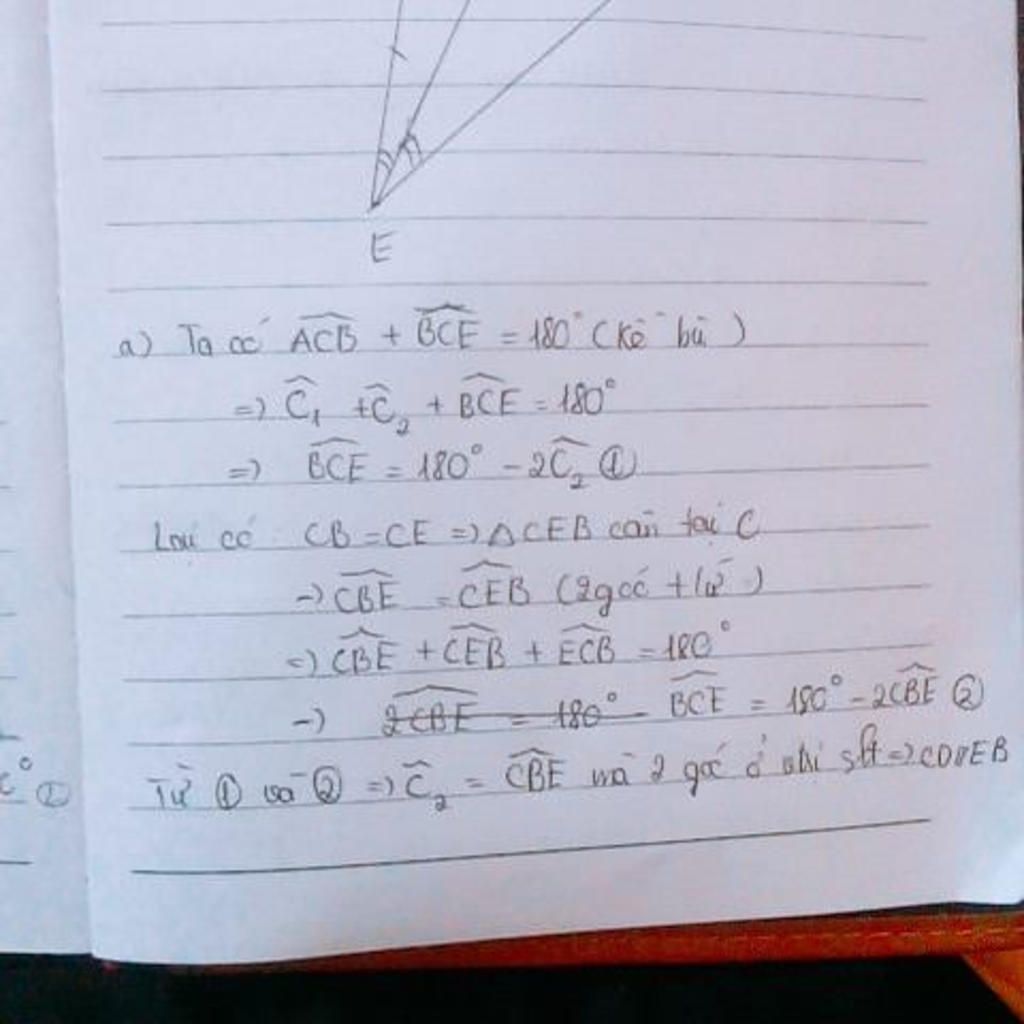 E
a) Ta có ACB + BCE = 180° (Kề bù)
=> C₁ + C₂ + BCE = 180°
=> BCE = 180° - 2C₂ ①
Lại có CB = CE => △CEB cân tại C
-> CBE = CEB (2góc t/ư)
=> CBE + CEB + ECB = 180°
-> 2CBE = 180° - BCE = 180° - 2CBE ②
Từ ① và ② => C₂ = CBE mà 2 góc ở vị trí slt => CD//EB
c° ①